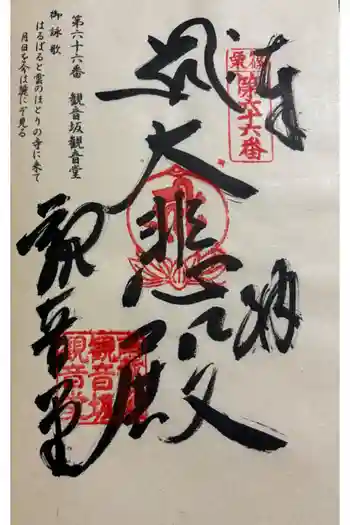 奉納
篠栗
第六十六番
大悲殿
観音堂
観音坂
観音堂
第六十六番　観音坂観音堂
御詠歌
はるばると雲のほとりの寺に来て
月日を今は麓にぞ見る